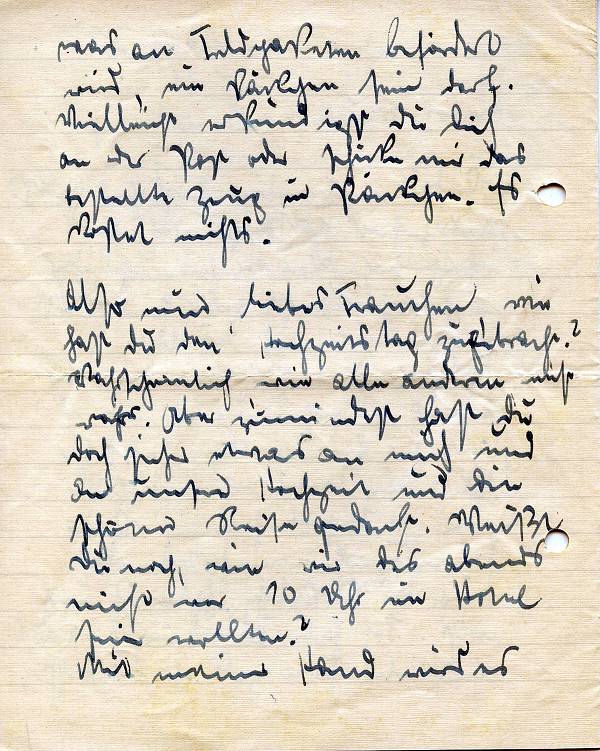 was an Feldpaketen befördert
wird, ein Päckchen sein darf.
Vielleicht erkundigst du dich
an der Post oder schicke mir das
bestellte Zeug in Päckchen. Es
kostet nichts.
Also mein liebes Frauchen wie
hast du den Hochzeitstag zugebracht?
Wahrscheinlich wie alle anderen nicht
wahr. Aber zumindest hast du
doch sicher etwas an mich und
an unsere Hochzeit und die
schöne Reise gedacht. Weißt
du noch, wie wir des abends
nicht vor 10 Uhr im Hotel
sein wollten?
Mit meiner Hand wird es